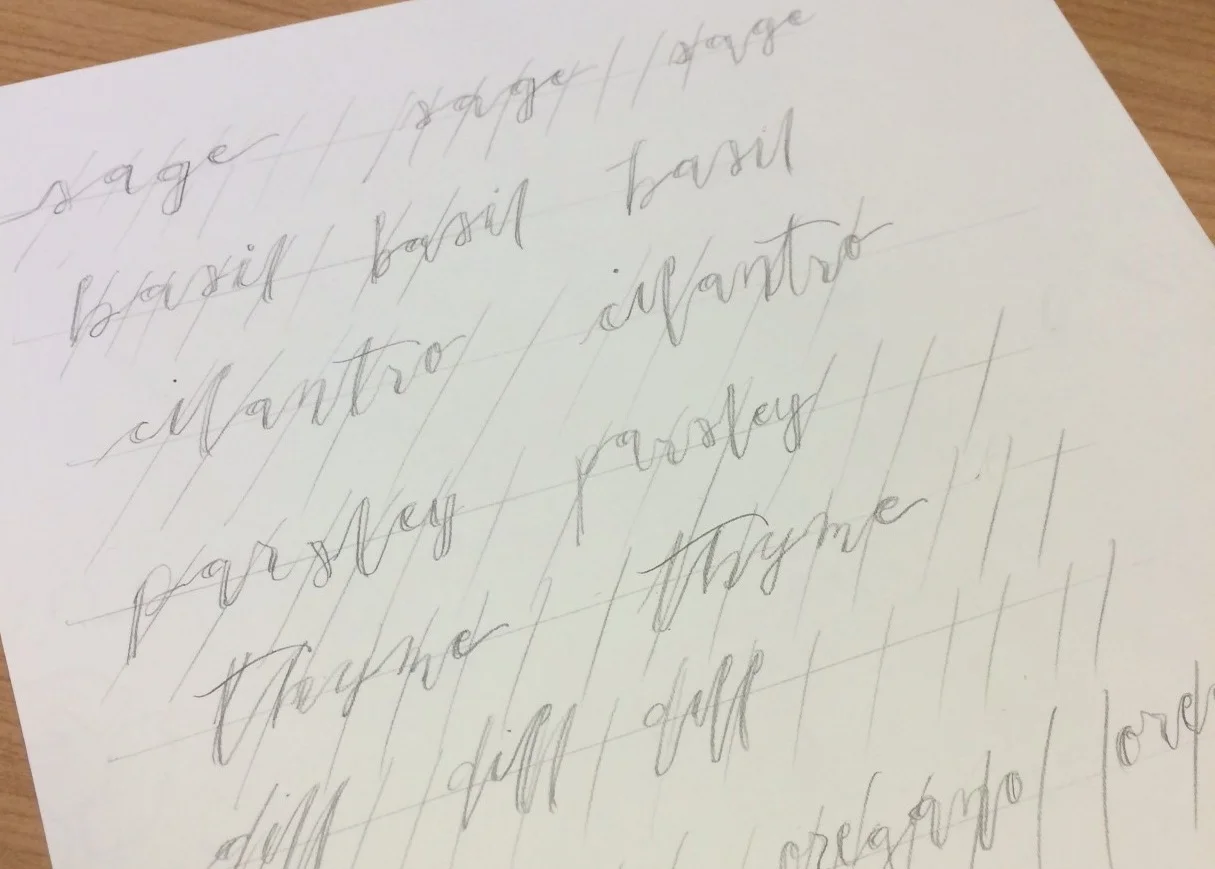 sage sage sage
basil basil basil
cilantro cilantro
parsley parsley
thyme thyme
dill dill dill
oregano